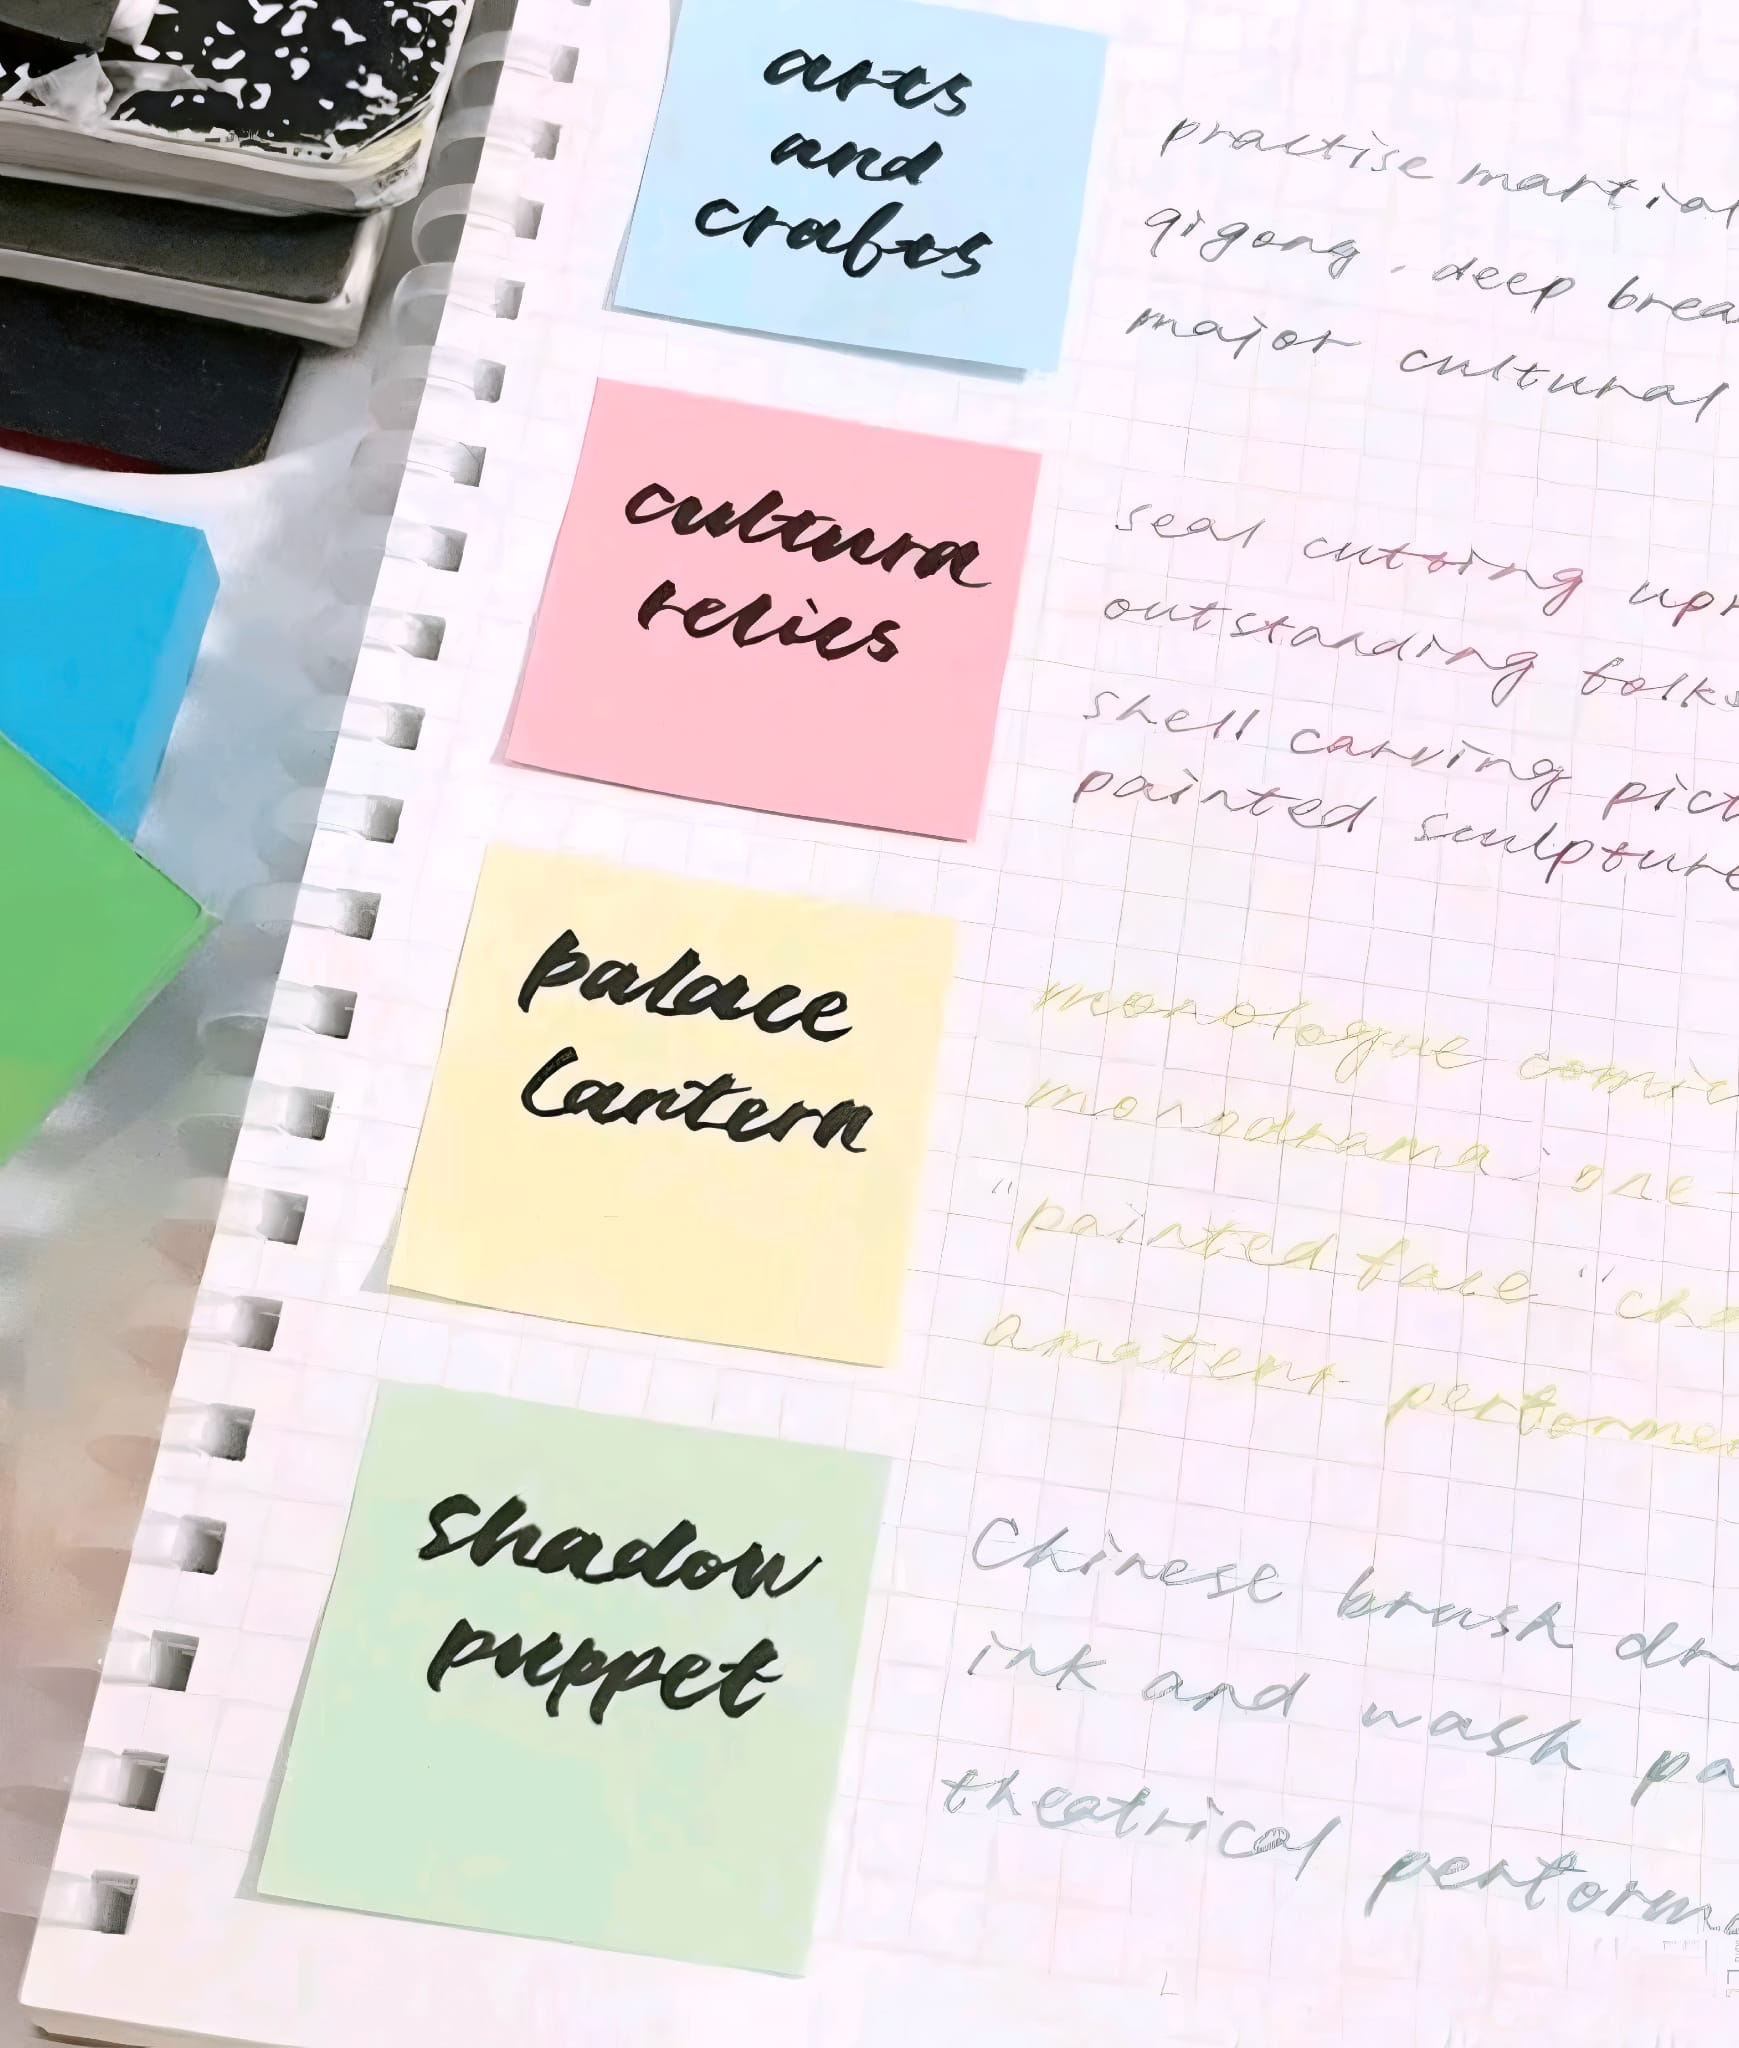 arts
and
crafts
practise martial
qigong . deep brea
major cultural
cultura
relics
seal cutting upr
outstanding folks
shell carving pict
painted sculpture
palace
lantern
monologue comic
monodrama; one-
"painted face" cha
amateur performer
shadow
puppet
Chinese brush dr
ink and wash pa
theatrical performa